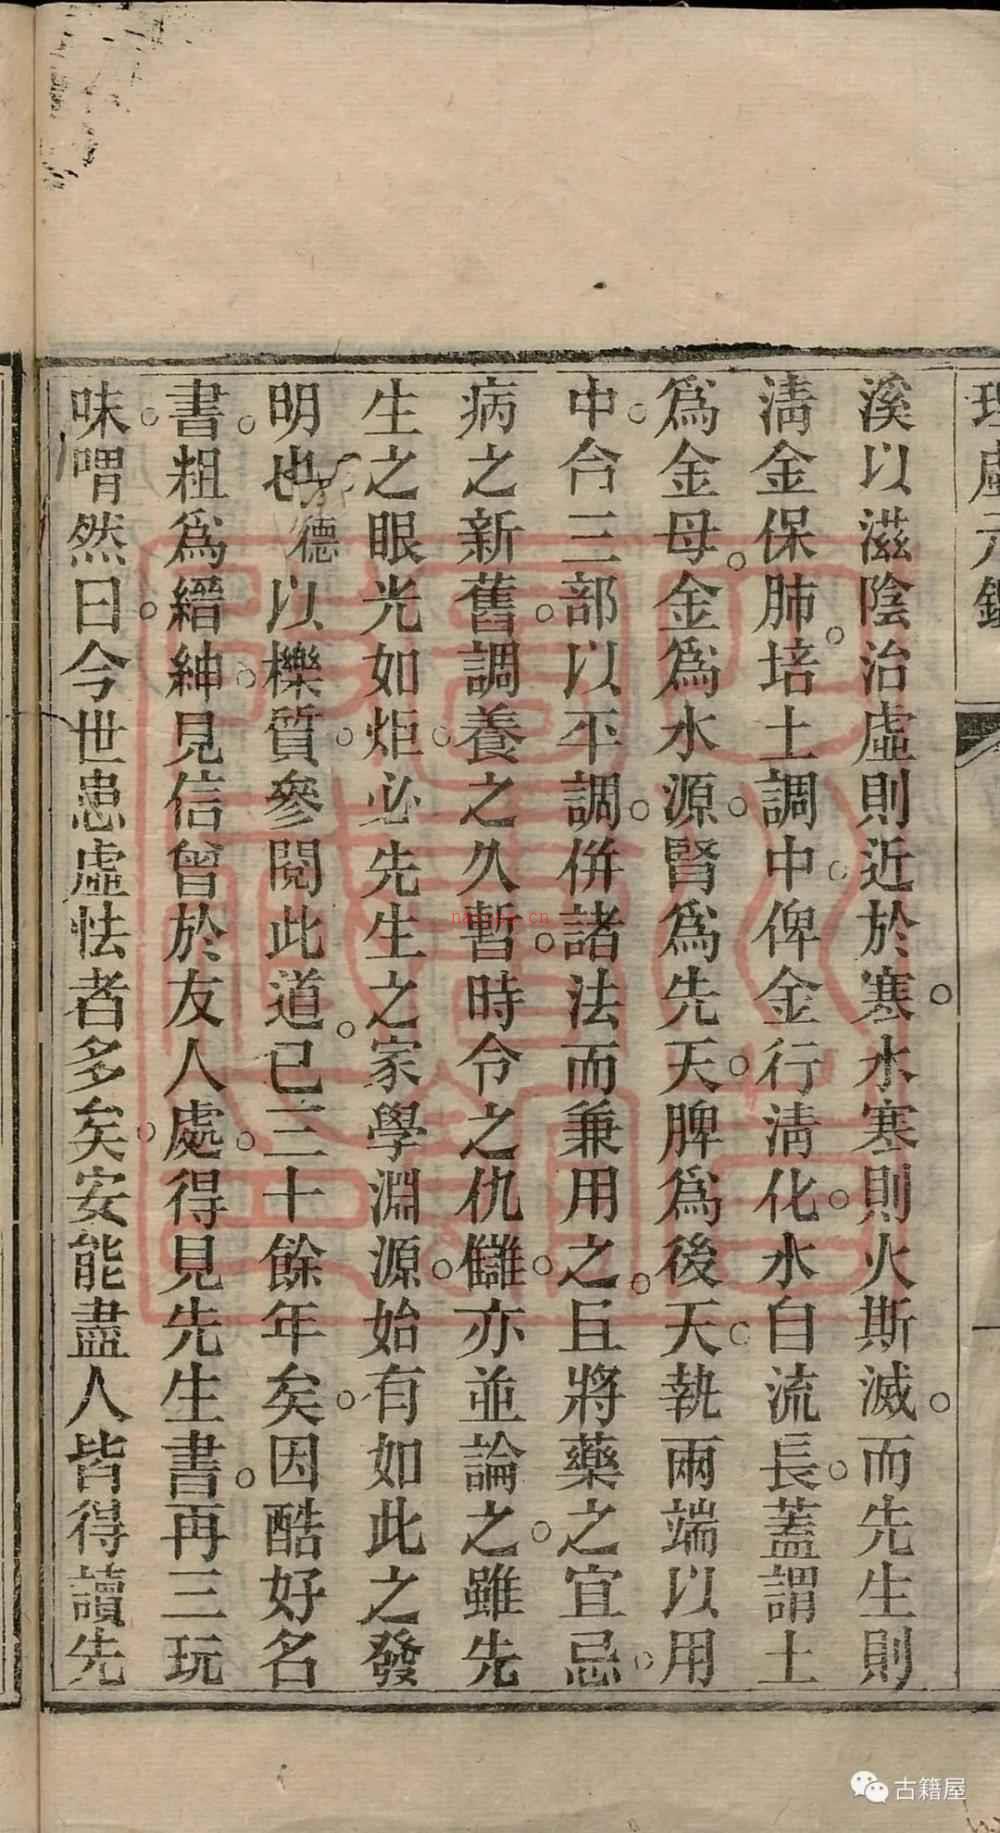 理虛元鑑
溪以滋陰治虛則近於寒水寒則火斯滅而先生則
淸金保肺培土調中俾金行淸化水自流長蓋謂土
爲金母金爲水源腎爲先天脾爲後天執兩端以用
中合三部以平調倂諸法而兼用之且將藥之宜忌
病之新舊調養之久暫時令之仇讎亦並論之雖先
生之眼光如炬必先生之家學淵源始有如此之發
明也德以櫟質參閱此道已三十餘年矣因酷好名
書粗爲縉紳見信曾於友人處得見先生書再三玩
味喟然曰今世患虛怯者多矣安能盡人皆得讀先
古籍屋